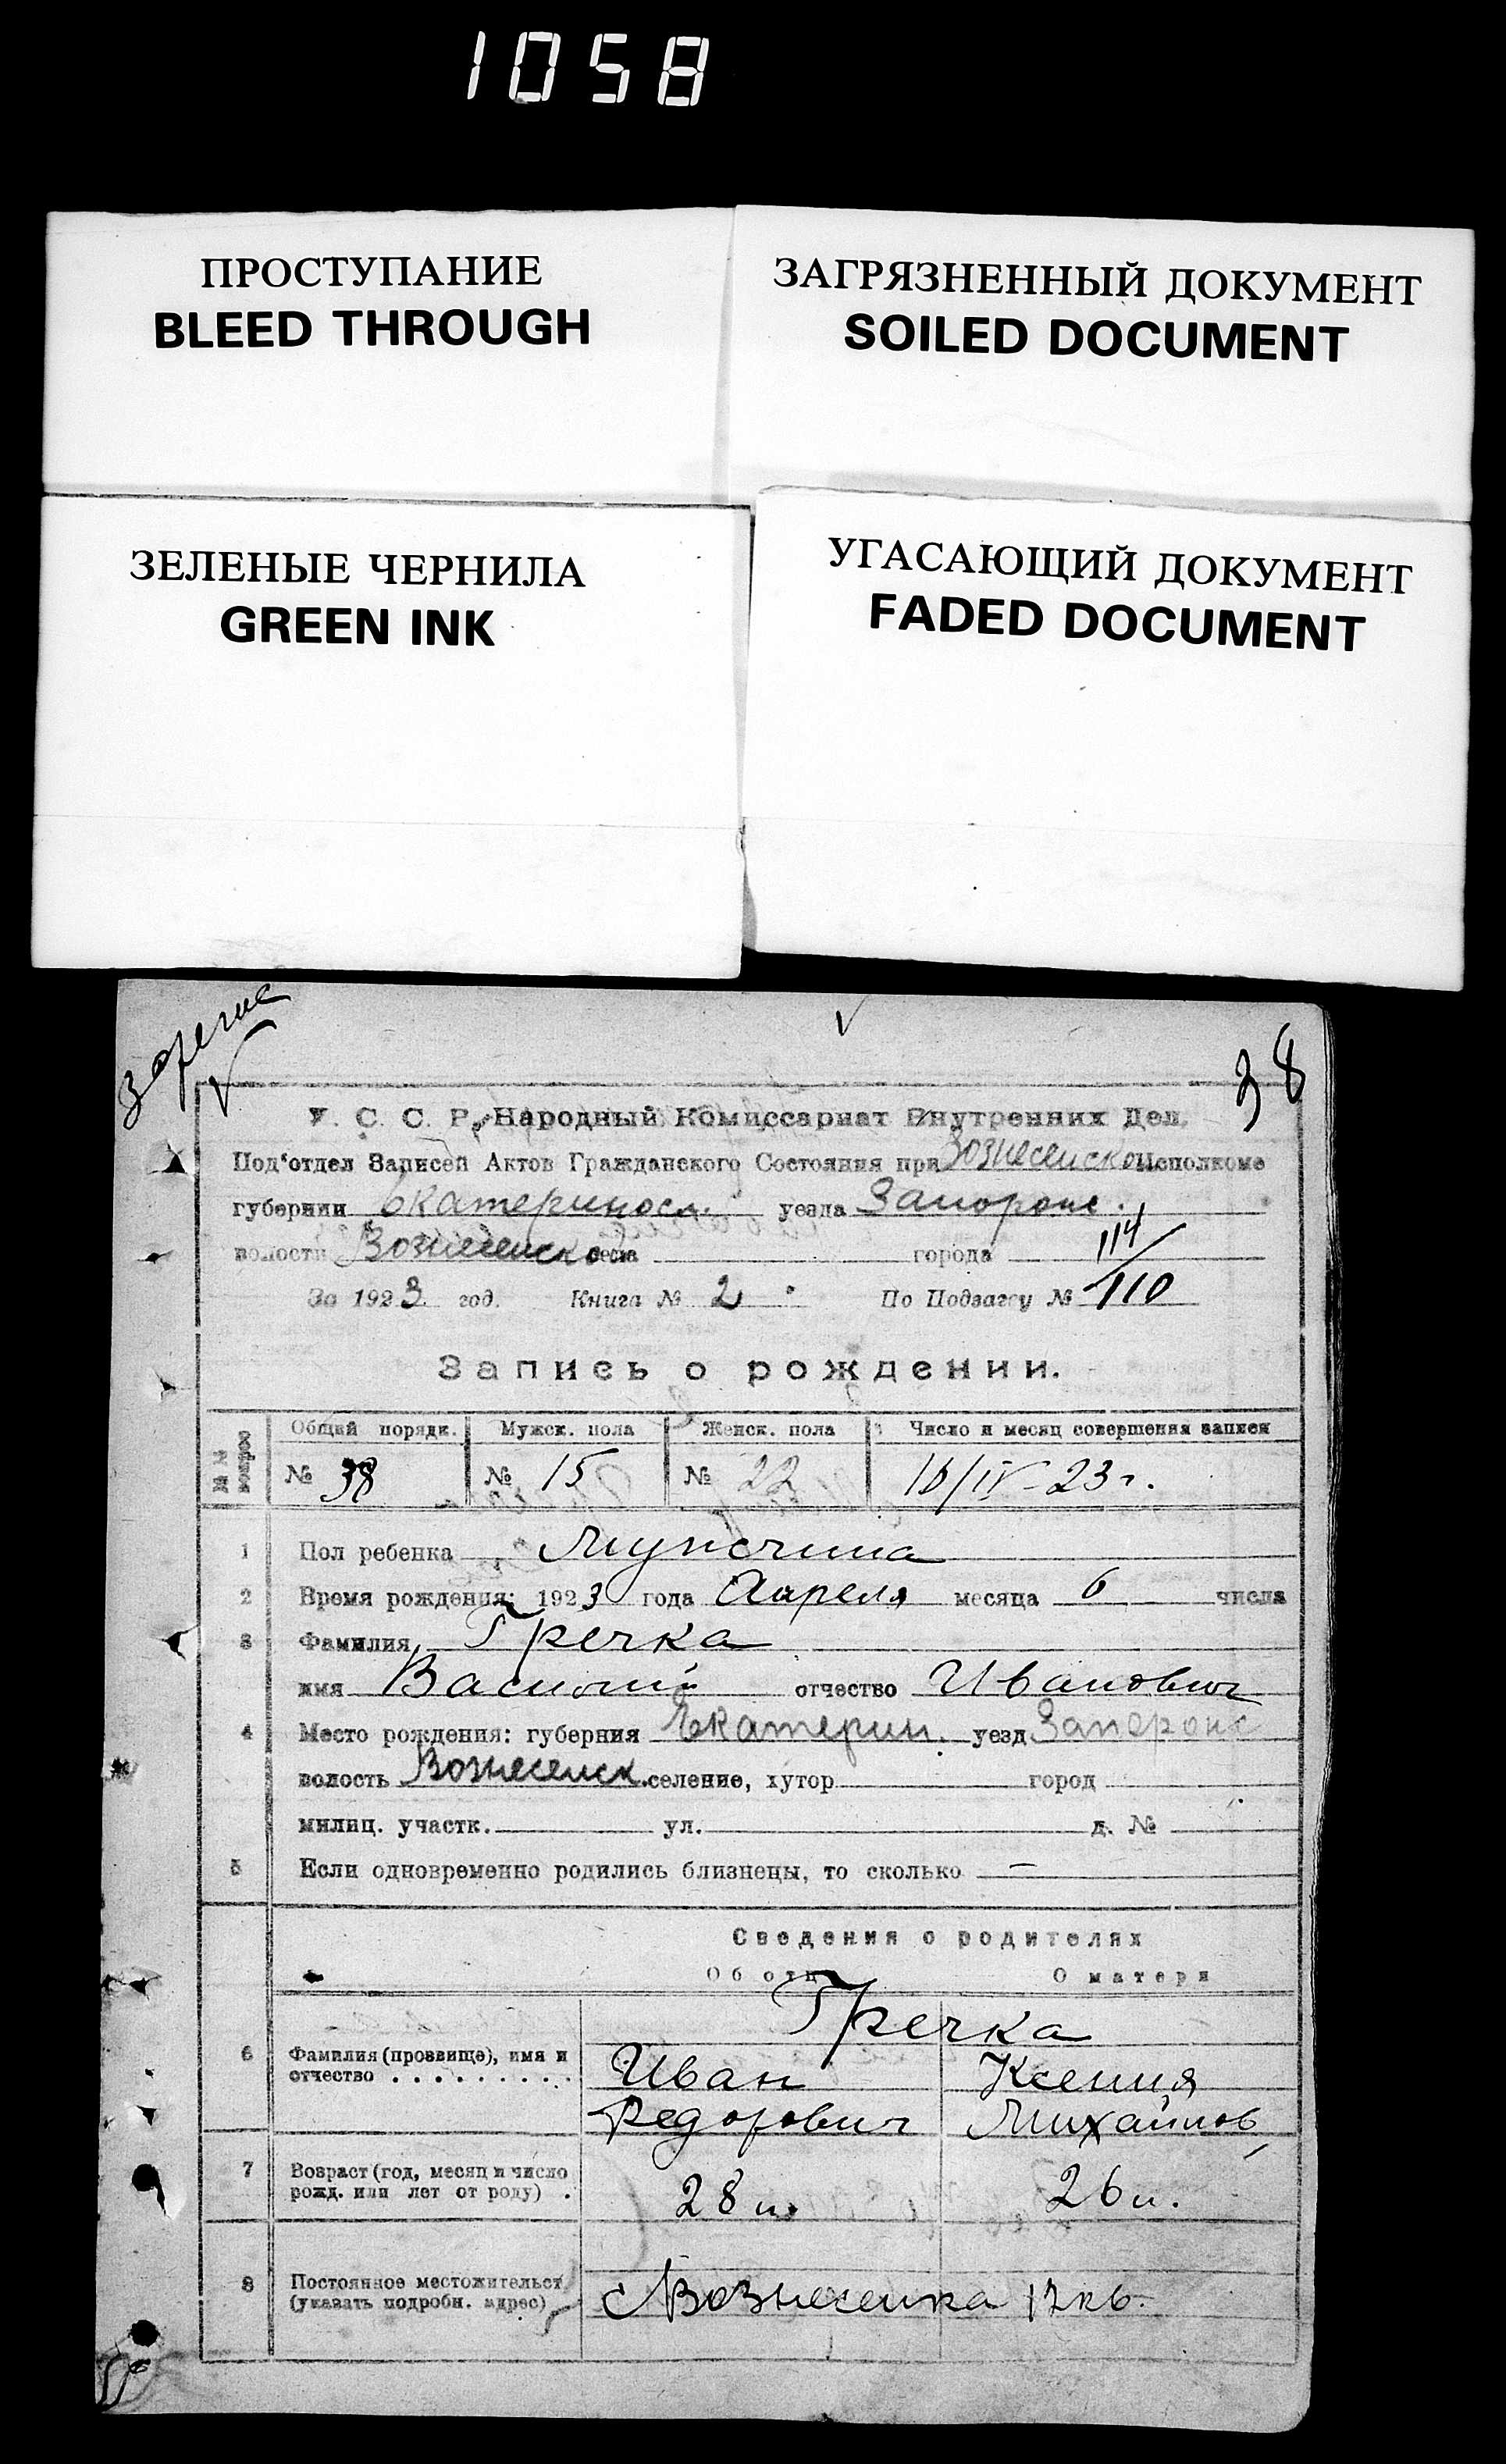 1058
ПРОСТУПАНИЕ
BLEED THROUGH
ЗАГРЯЗНЕННЫЙ ДОКУМЕНТ
SOILED DOCUMENT
ЗЕЛЕНЫЕ ЧЕРНИЛА
GREEN INK
УГАСАЮЩИЙ ДОКУМЕНТ
FADED DOCUMENT
38
У. С. С. Р. Народный Комиссариат Внутренних Дел.
Под'отдел Записей Актов Гражданского Состояния при Вознесенском Исполкоме
губернии Екатериносл. уезда Запорож.
волости Вознесенской села города 114
За 1923 год. Книга № 2 По Подзагсу № 110
Запись о рождении.
№№ вопросов
Общий порядк. Мужск. пола Женск. пола Число и месяц совершения записи
№ 38 № 15 № 22 /IV-23 г.
1 Пол ребенка Мужчина
2 Время рождения: 1923 года Апреля месяца 6 числа
3 Фамилия Гречка
имя Василий отчество Иванович
4 Место рождения: губерния Екатерин. уезд Запорож
волость Вознесенск. селение, хутор город
милиц. участк. ул. д. №
5 Если одновременно родились близнецы, то сколько —
Сведения о родителях
Об отце О матери
Гречка
6 Фамилия (прозвище), имя и Иван Ксения
отчество . . . . . . . . . Федорович Михайлов
7 Возраст (год, месяц и число
рожд. или лет от роду) . 28 л. 26 л.
8 Постоянное местожительст
(указать подробн. адрес) с Вознесенка 12 кв.